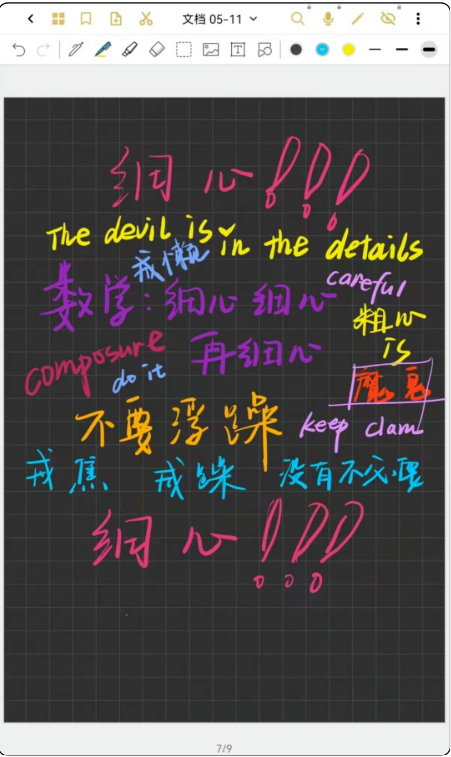 文档 05-11
细心!!!
The devil is in the details
戒懒
careful
数学:细心 细心
粗心
is
composure
do it
再细心
魔鬼
不要浮躁
keep clam
戒焦 戒躁 没有不必要
细心!!!
7/9